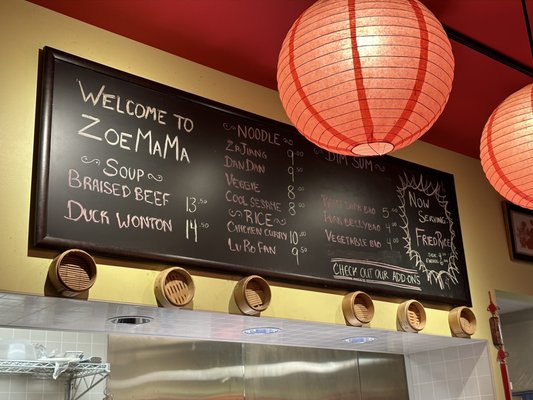 WELCOME TO
ZOEMAMA
SOUP
BRAISED BEEF 13.50
DUCK WONTON 14.50
NOODLE
ZAJIANG 9
DAN DAN 9
VEGGIE 8
COOL SESAME 8
RICE
CHICKEN CURRY 10.50
LU RO FAN 9.50
DIM SUM
BAO 5
PORK BELLY BAO 4
VEGETABLE BAO 4
CHECK OUT OUR ADD-ONS
NOW
SERVING
FRIED RICE